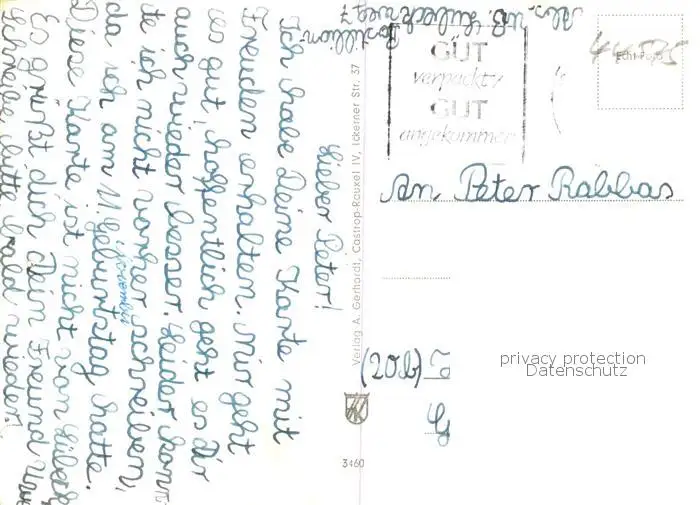 Lieber Peter!
Ich habe Deine Karte mit
Freuden erhalten. Mir geht
es gut, hoffentlich geht es dir
auch wieder besser. Leider konn
te ich nicht vorher schreiben,
da ich am 11. November Geburtstag hatte.
Diese Karte ist nicht von Lübeck
Es grüßt dich Dein Freund Uwe
Schreibe bitte bald wieder.
Abs. Lübeck
7
GUT
verpackt,
GUT
angekommen
Echt Foto
44525
An Peter Rabbas
(20b)
Verlag A. Gerhardi, Castrop-Rauxel IV, Ickerner Str. 37
3460
privacy protection
Datenschutz